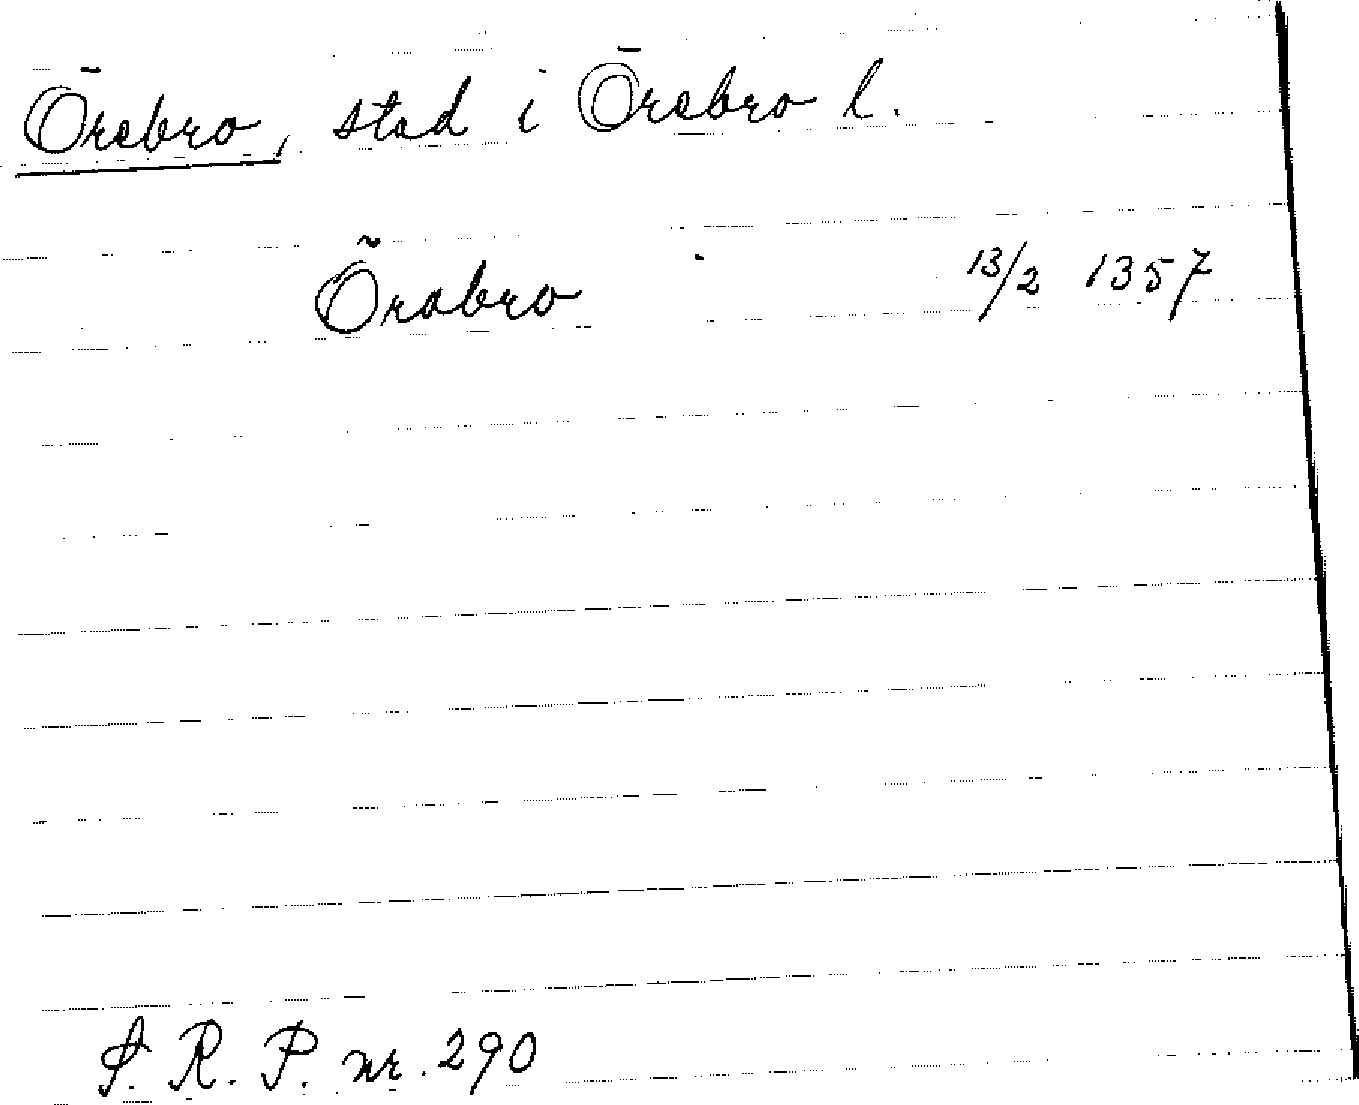 Örebro, stad i Örebro l.
Örabro 13/2 1357
S. R. P. nr. 290